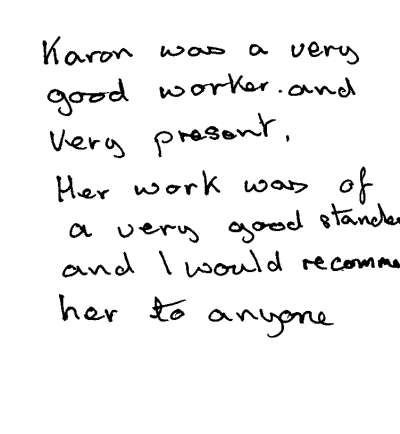 Karon was a very
good worker. and
very present,
Her work was of
a very good
and I would
her to anyone